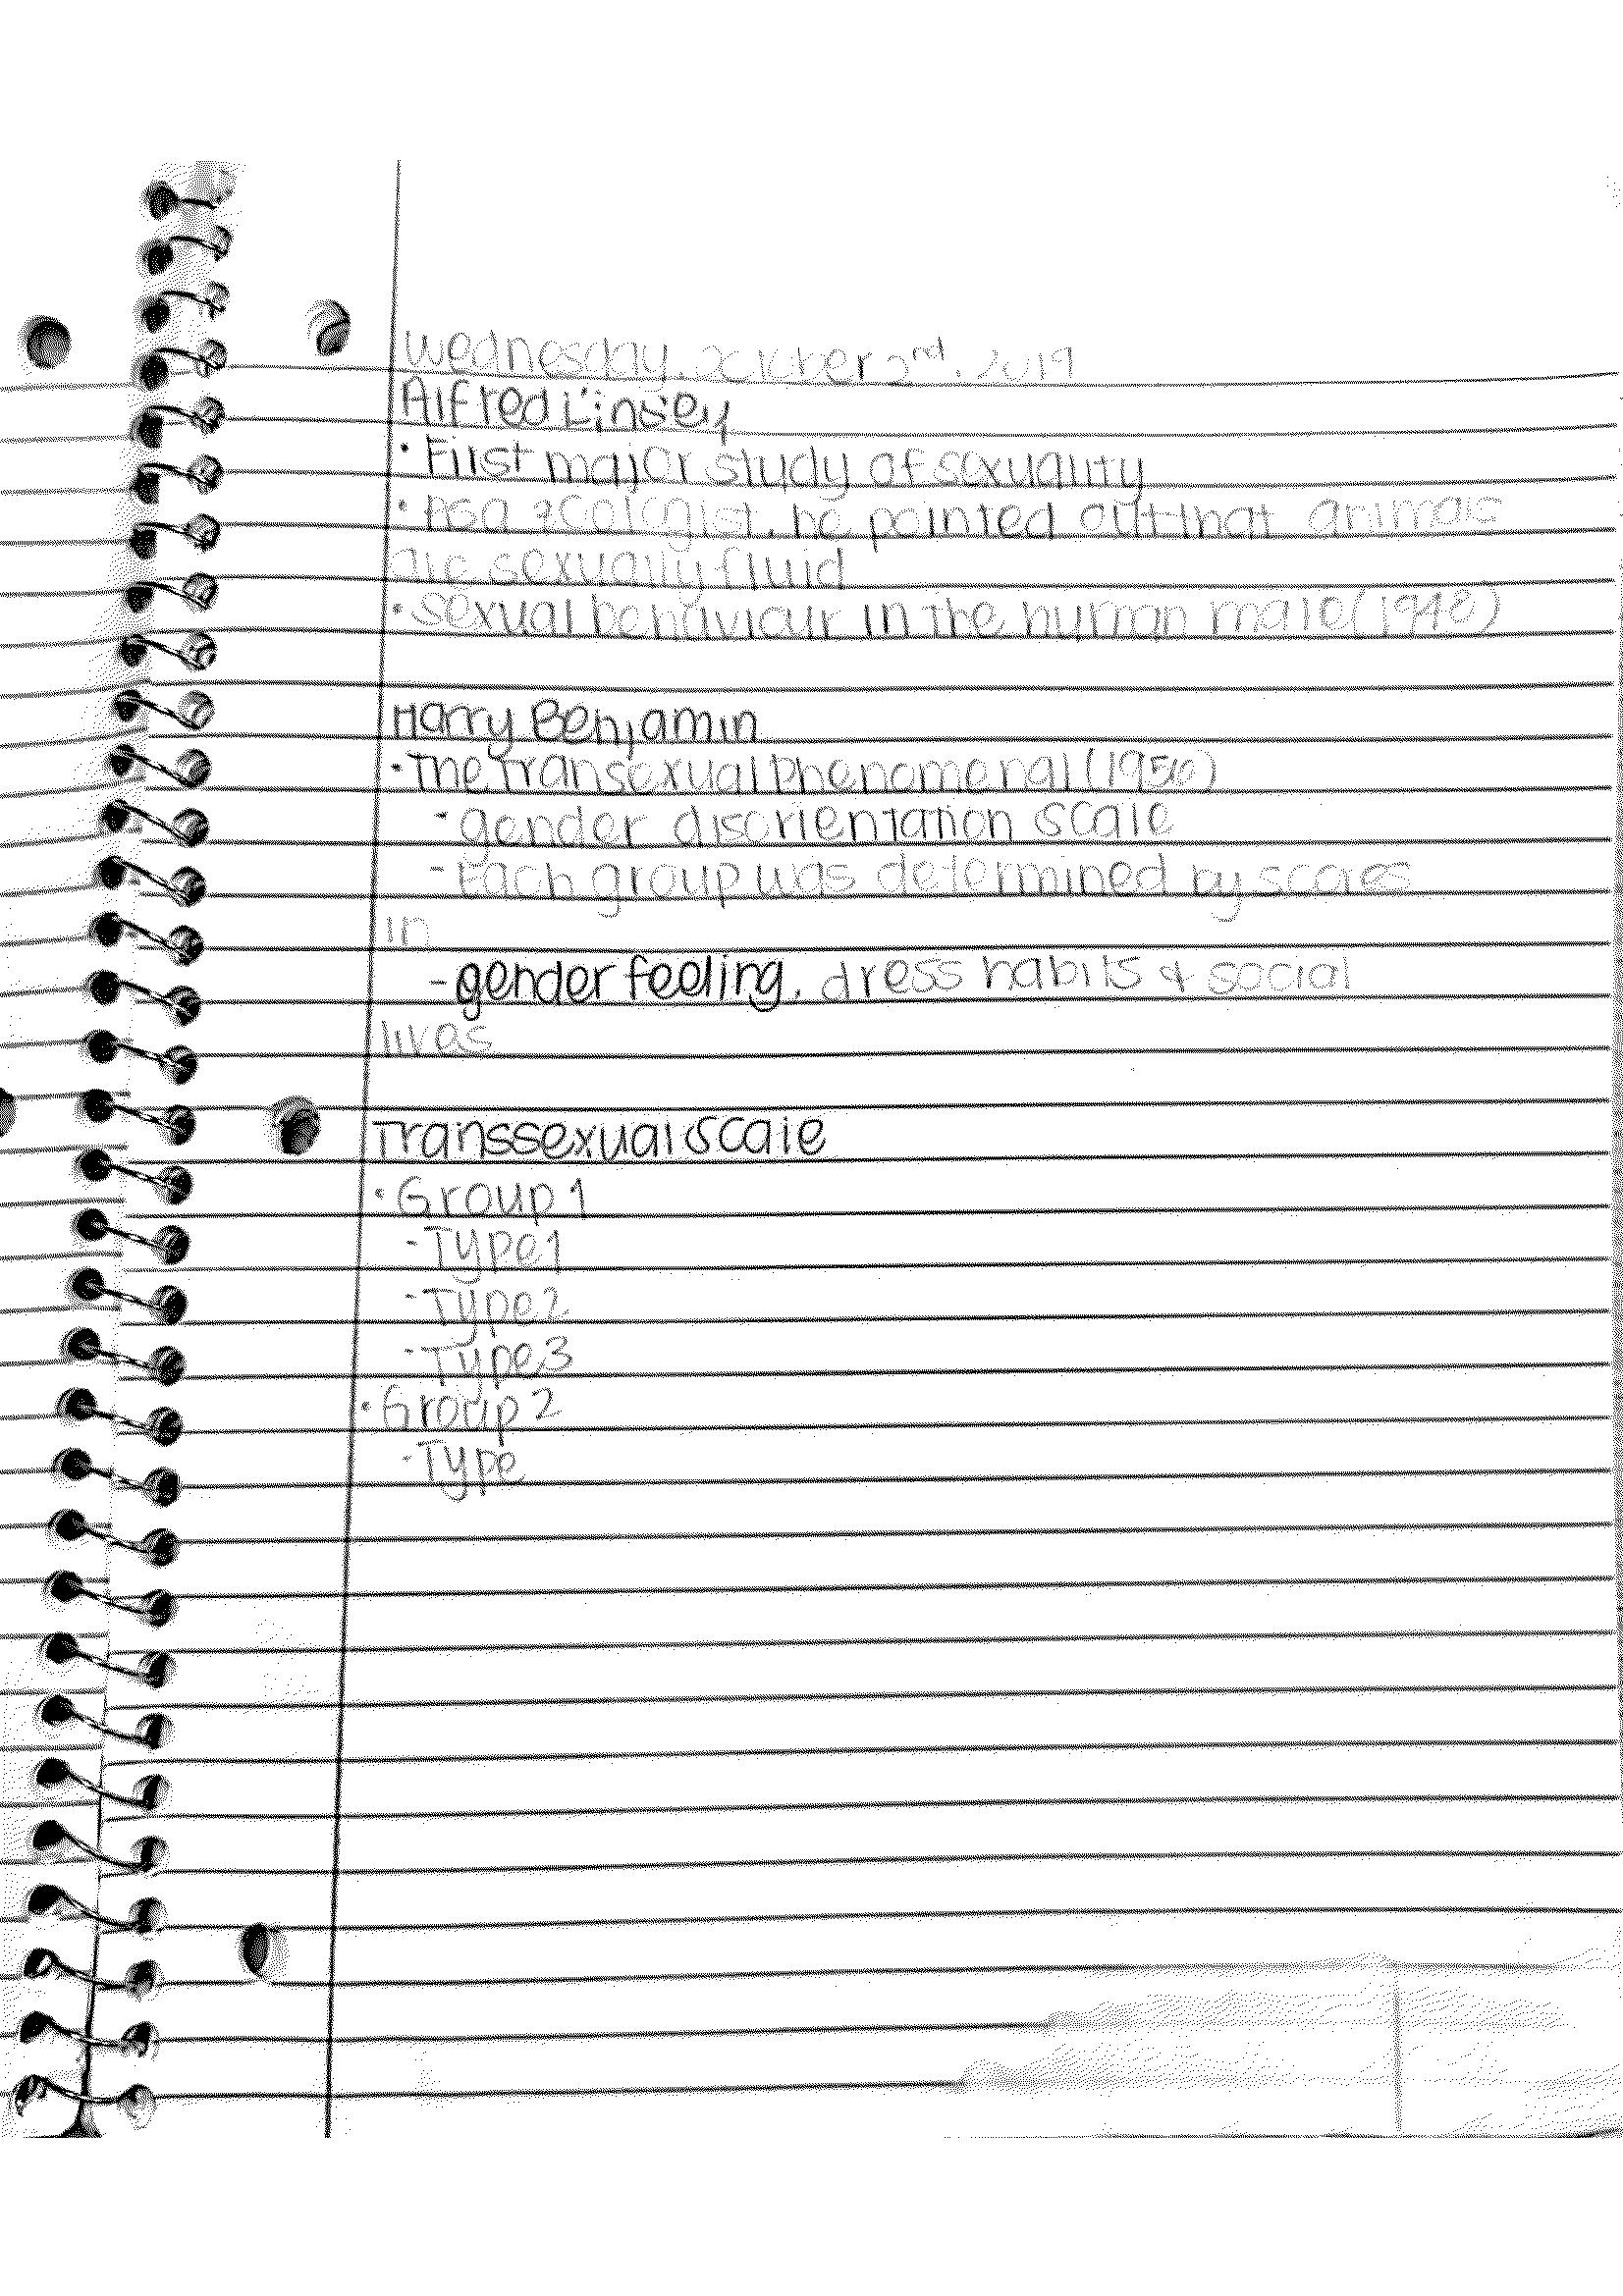 Wednesday, October 2nd, 2019
Alfred Linsey
• First major study of sexuality
• As a zoologist, he pointed out that animals
are sexually fluid
• Sexual behaviour in the human male (1948)
Harry Benjamin
• The Transexual Phenomenal (1956)
- gender disorientation scale
- Each group was determined by scores
in
- gender feeling, dress habits & social
lives
Transsexual Scale
• Group 1
- Type 1
- Type 2
- Type 3
• Group 2
- Type